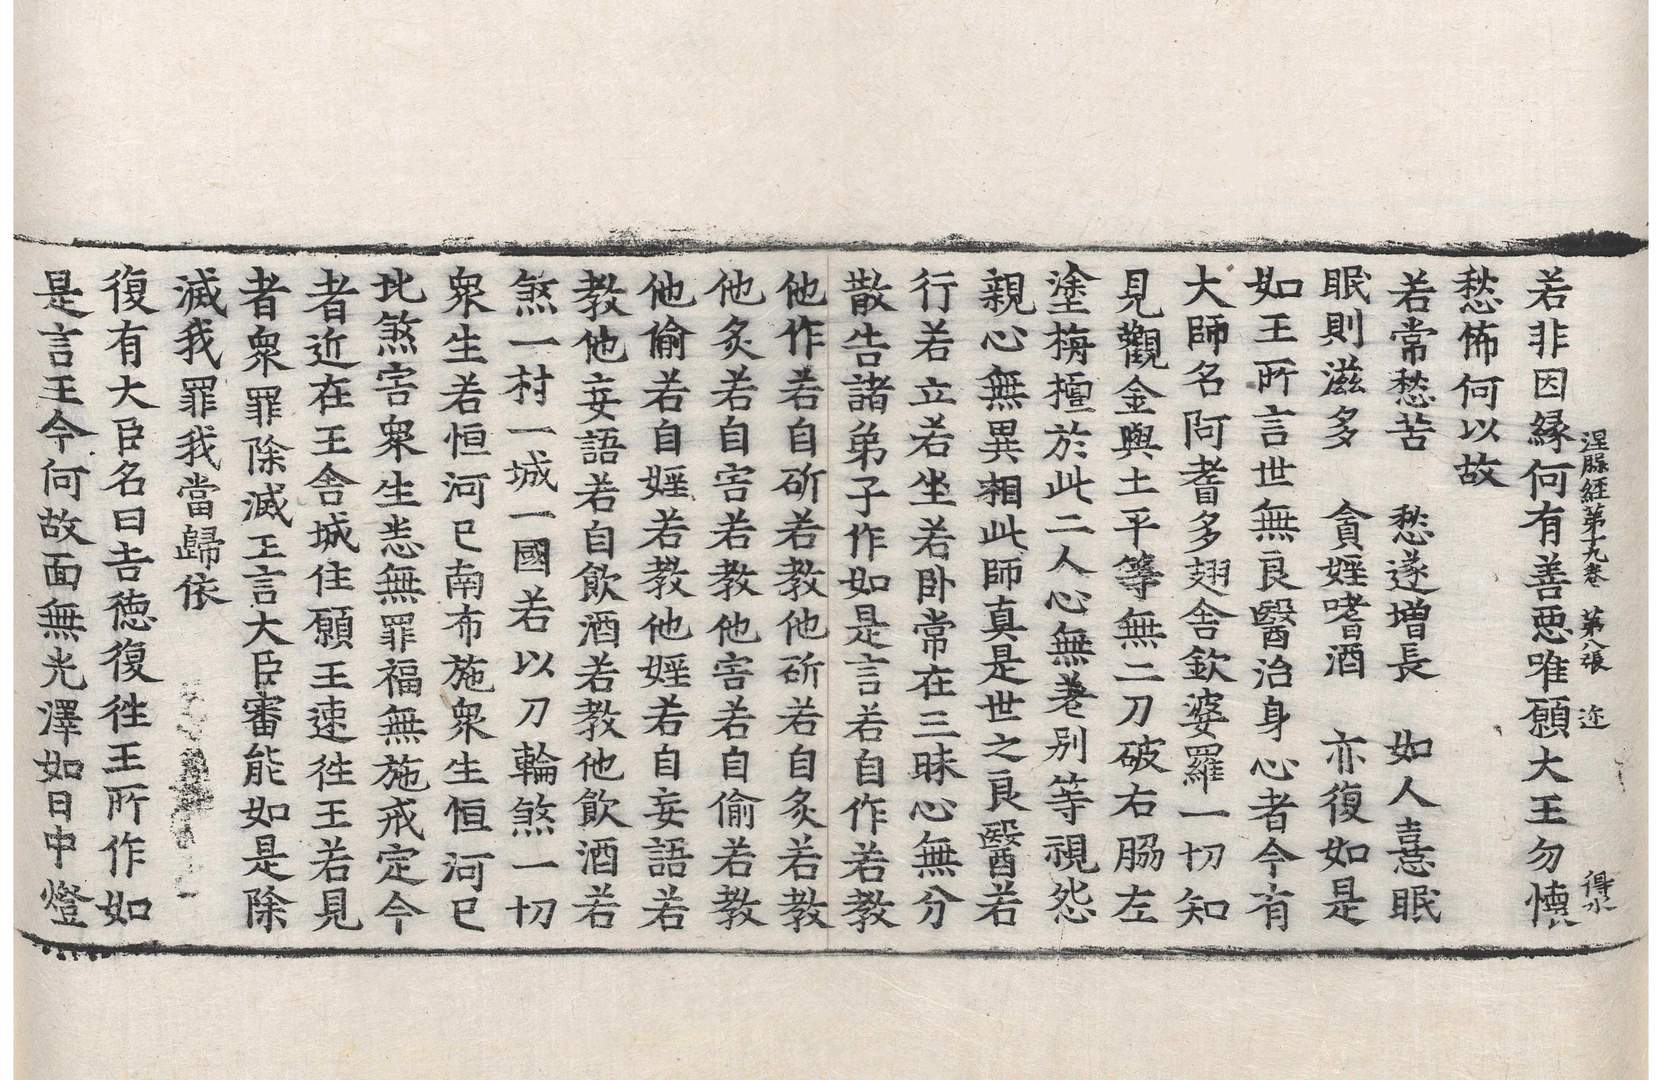 涅脲経第十九卷 第八張 迩 得水
若非因縁何有善悪唯願大王勿懐
愁怖何以故
若常愁苦 愁遂增長 如人憙眠
眠則滋多 貪婬嗜酒 亦復如是
如王所言世無良醫治身心者今有
大師名阿耆多翅舎欽婆羅一切知
見觀金與土平等無二刀破右脇左
塗栴檀於此二人心無差别等視怨
親心無異相此師真是世之良醫若
行若立若坐若卧常在三昧心無分
散告諸弟子作如是言若自作若教
他作若自斫若教他斫若自炙若教
他炙若自害若教他害若自偷若教
他偷若自婬若教他婬若自妄語若
教他妄語若自飲酒若教他飲酒若
煞一村一城一國若以刀輪煞一切
衆生若恒河已南布施衆生恒河已
北煞害衆生悉無罪福無施戒定今
者近在王舎城住願王速徃王若見
者衆罪除滅王言大臣審能如是除
滅我罪我當歸依
復有大臣名曰吉徳復徃王所作如
是言王今何故面無光澤如日中燈